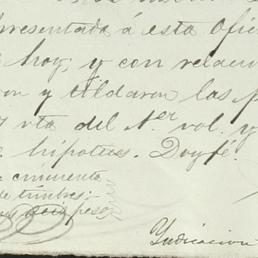 presentada á esta Ofic
hoy, y con relaci
on y tildaron las p
vta del 1.er vol. y
hipotecs. Doy fé.
cincuenta
de timbres:
pesos
Yndicacion